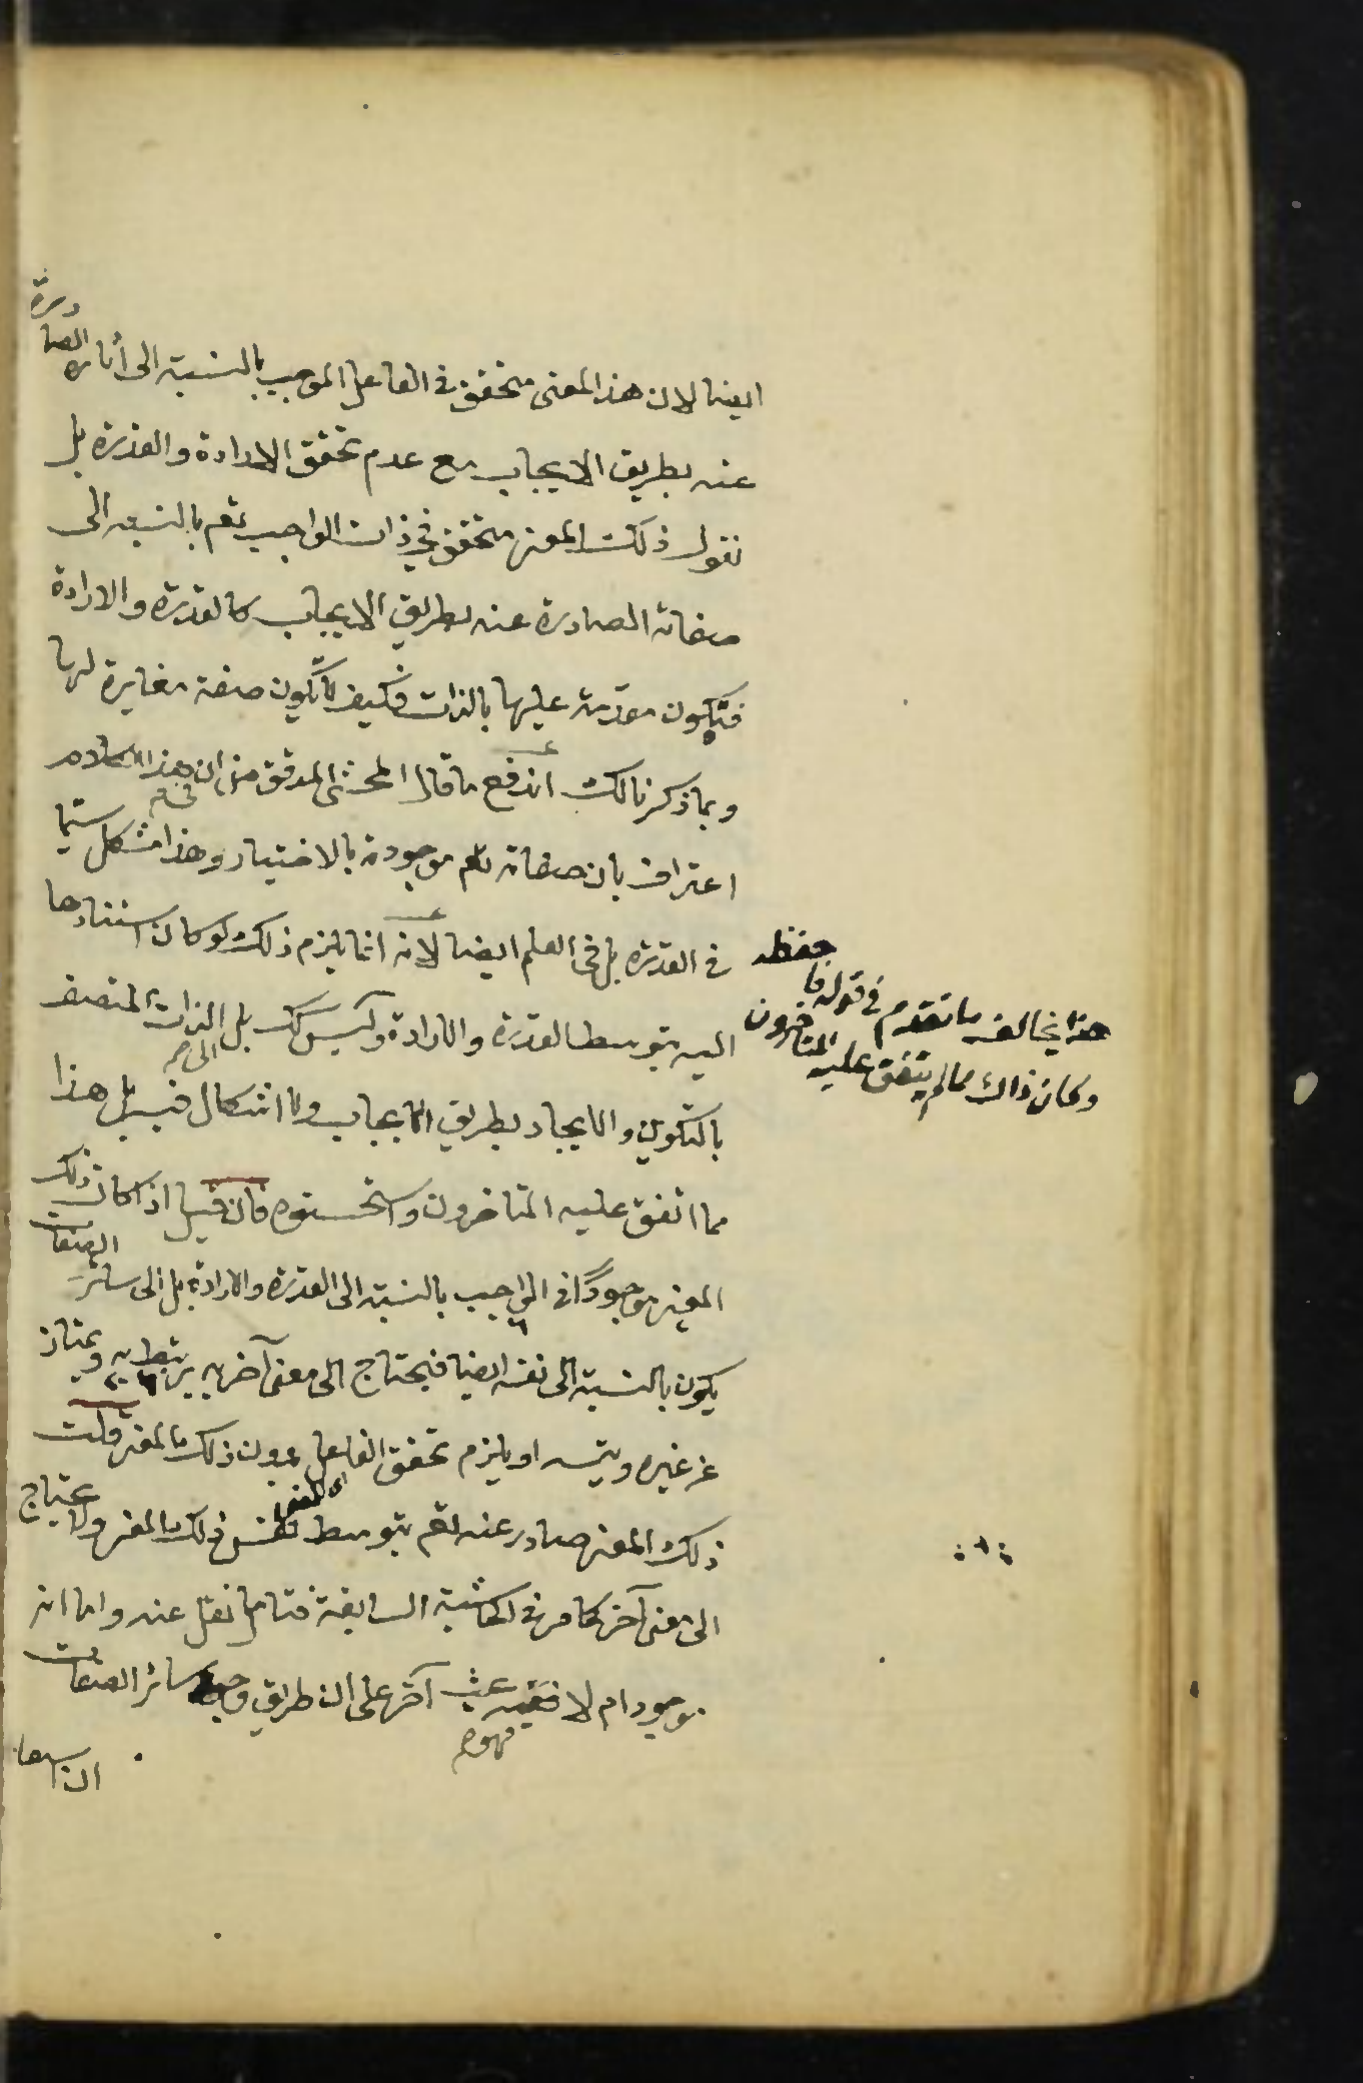 ايضا لان هذا المعنى متحقق في الفاعل الموجب بالنسبة الى آثاره الصادرة
عنه بطريق الايجاب مع عدم تحقق الارادة والقدرة بل
نقول ذلك المعنى متحقق في ذات الواجب تعم بالنسبة الى
صفاته الصادرة عنه بطريق الايجاب كالقدرة والارادة
فتكون مقدمة عليها بالذات فكيف لا تكون صفة مغايرة لها
وبما ذكرنا لك اندفع ما قال المحشي المدقق من ان هذا الكلام
اعتراف بان صفاته تعم موجودة بالاختيار وهذا مشكل سيما
في القدرة بل في العلم ايضا لانه انما يلزم ذلك لو كان استنادها
اليه بتوسط القدرة والارادة وليس كك بل الذات المتصف
بالتكوين والايجاد بطريق الايجاب ولا اشكال فيه بل هذا
مما اتفق عليه المتاخرون واستحسنوه فان قيل اذا كان ذلك
المعنى موجودًا في الواجب بالنسبة الى القدرة والارادة بل الى سائر الصفات
يكون بالنسبة الى نفسه ايضا فيحتاج الى معنى آخر به يرتبط به ويمتاز
عن غيره او يلزم تحقق الفاعل بدون ذلك المعنى قلت
ذلك المعنى صادر عنه تعم بتوسط نفس ذلك المعنى ولا يحتاج
الى معنى آخر كما مر في الحاشية السابقة فتامل نقل عنه واما انه
موجود ام لا ففيه بحث آخر على ان طريق سائر الصفات
ان
هذا يخالف ما تقدم في قوله
وكان ذلك مما لم يتفق عليه المتاخرون